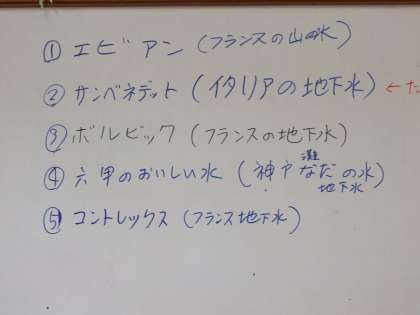 ① エビアン (フランスの山の水)
② サンベネデット (イタリアの地下水) ←た
③ ボルビック (フランスの地下水)
④ 六甲のおいしい水 (神戸 灘 なだの水)
地下水
⑤ コントレックス (フランス地下水)